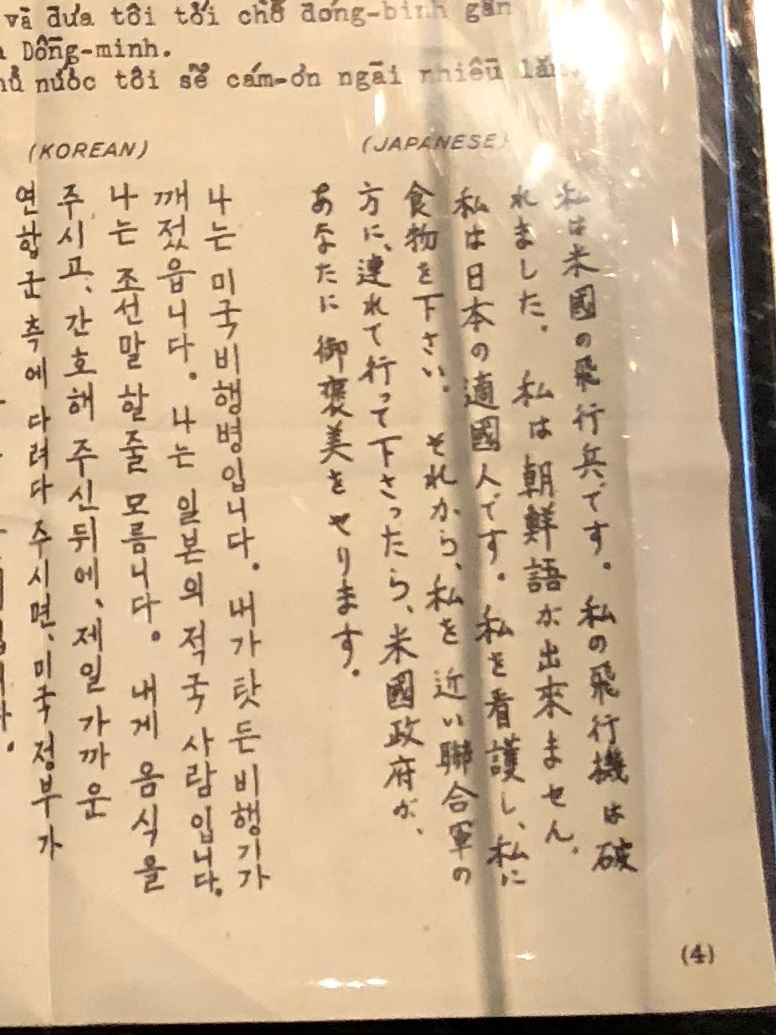 và đưa tôi tới chỗ đóng-binh gần
Đồng-minh.
nước tôi sẽ cám-ơn ngài nhiều lắm.
(KOREAN)
나는 미국비행병입니다. 내가 탓든비행기가
깨젔읍니다. 나는 일본의 적국 사람입니다.
나는 조선말 할줄 모릅니다. 내게 음식을
주시고, 간호해 주신뒤에, 제일 가까운
연합군 측에 다려다 주시면, 미국정부가
(JAPANESE)
私は米國の飛行兵です。私の飛行機は破
れました。私は朝鮮語が出來ません。
私は日本の適國人です。私を看護し、私に
食物を下さい。それから、私を近い聯合軍の
方に、連れて行って下さったら、米國政府が、
あなたに御褒美をやります。
(4)